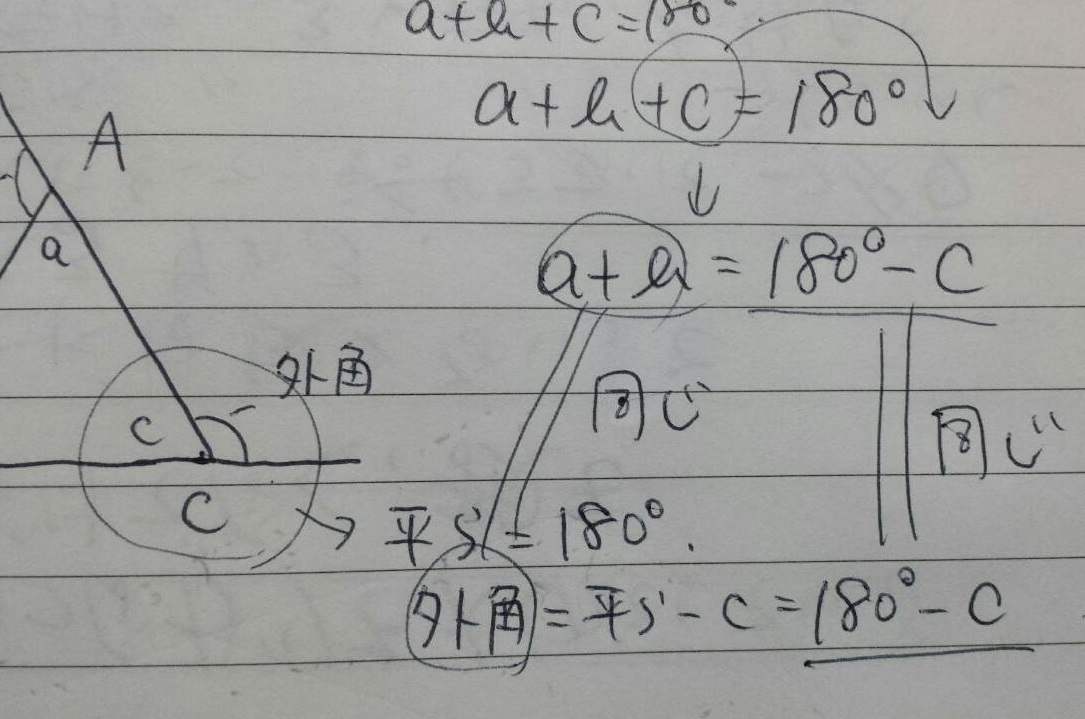 a+b+c=180°.
a+b+c=180°
↓
A
a
a+b = 180°-C
外角
同じ
同じ
c
C
→ 平ら = 180°.
外角 = 平ら - C = 180° - C